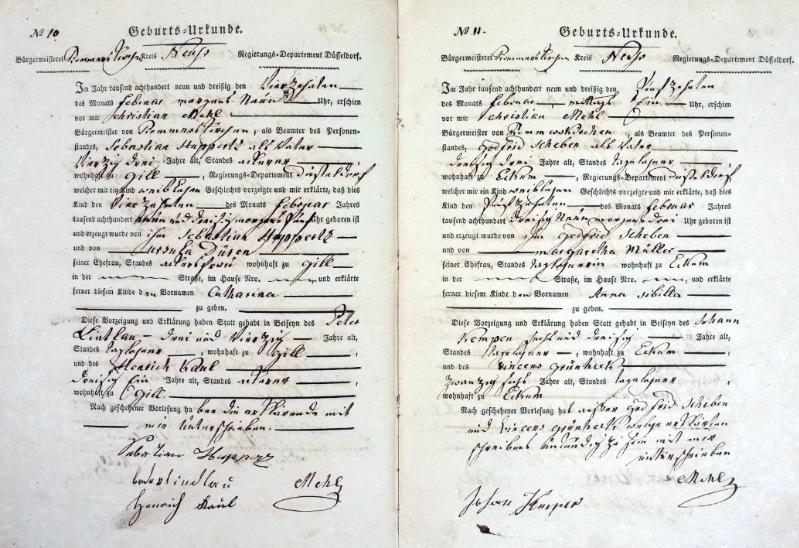 No 10
Geburts-Urkunde.
Bürgermeisterei Rommerskirchen Kreis Neuss Regierungs-Departement Düsseldorf.
Im Jahr tausend achthundert neun und dreißig den Vierzehnten
des Monats Februar morgens Neun Uhr, erschien
vor mir Christian Mehl
Bürgermeister von Rommerskirchen, als Beamter des Personen-
standes, Sebastian Huppertz als Vater
Vierzig drei Jahre alt, Standes Ackerer
wohnhaft zu Gill, Regierungs-Departement Düsseldorf
welcher mir ein Kind weiblichen Geschlechts vorzeigte und mir erklärte, daß dies
Kind den Vierzehnten des Monats Februar Jahres
tausend achthundert neun und dreisig morgens Uhr geboren ist
und erzeugt wurde von ihm Sebastian Huppertz
und von Ursula
seiner Ehefrau, Standes wohnhaft zu Gill
in der Straße, im Hause Nro. und erklärte
ferner diesem Kinde den Vornamen Catharina
zu geben.
Diese Vorzeigung und Erklärung haben Statt gehabt in Beiseyn des Peter
Lintlau drei und Vierzig Jahre alt,
Standes Taglohner, wohnhaft zu Gill
und des Henrich Kaul
dreisig Ein Jahre alt, Standes Ackerer
wohnhaft zu Gill.
Nach geschehener Vorlesung haben die erklärende mit
mir unterschrieben.
Sebastian Huppertz
Peter Lindlau
Mehl
Henrich Kaul
No 11.
Geburts-Urkunde.
Bürgermeisterei Rommerskirchen Kreis Neuss Regierungs-Departement Düsseldorf.
Im Jahr tausend achthundert neun und dreißig den Fünfzehnten
des Monats Februar mittags Ein Uhr, erschien
vor mir Christian Mehl
Bürgermeister von Rommerskirchen, als Beamter des Personen-
standes, Godfrid Scheben als Vater
dreisig drei Jahre alt, Standes Taglohner
wohnhaft zu Eckum, Regierungs-Departement Düsseldorf
welcher mir ein Kind weiblichen Geschlechts vorzeigte und mir erklärte, daß dies
Kind den Fünfzehnten des Monats Februar Jahres
tausend achthundert dreisig Neun morgens drei Uhr geboren ist
und erzeugt wurde von ihm Godfrid Scheben
und von Margaretha Müller
seiner Ehefrau, Standes Taglohnerin wohnhaft zu Eckum
in der Straße, im Hause Nro. und erklärte
ferner diesem Kinde den Vornamen Anna Sibilla
zu geben.
Diese Vorzeigung und Erklärung haben Statt gehabt in Beiseyn des Johann
Kempen sechs und dreisig Jahre alt,
Standes Taglohner, wohnhaft zu Eckum
und des Vincens
zwanzig sechs Jahre alt, Standes Taglohner
wohnhaft zu Eckum
Nach geschehener Vorlesung hat außer Godfrid Scheben
und Vincens welche erklärten
schreibens unkundig zu sein mit mir
unterschrieben
Mehl
Johan Kemper